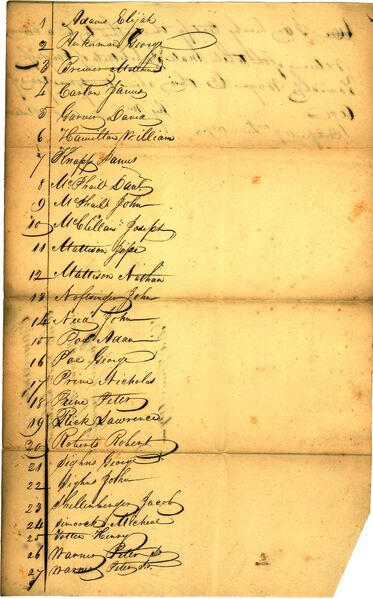 1 Adams Elijah
2 Aukerman George
3 Brewer Matthew
4 Carton James
5 Garver David
6 Hamilton William
7 Knapp James
8 McPhail Danl
9 McPhail John
10 McClellan Joseph
11 Mattison Jesse
12 Mattison Nathan
13 Noftsinger John
14 Need John
15 Poe Adam
16 Poe George
17 Prine Nicholas
18 Prine Peter
19 Lawrence
20 Roberts Robert
21 Sighns George
22 Sighns John
23 Shellenberger Jacob
24 Micheal
25 Henry
26 Warner Peter Jr
27 Warner Peter Sr